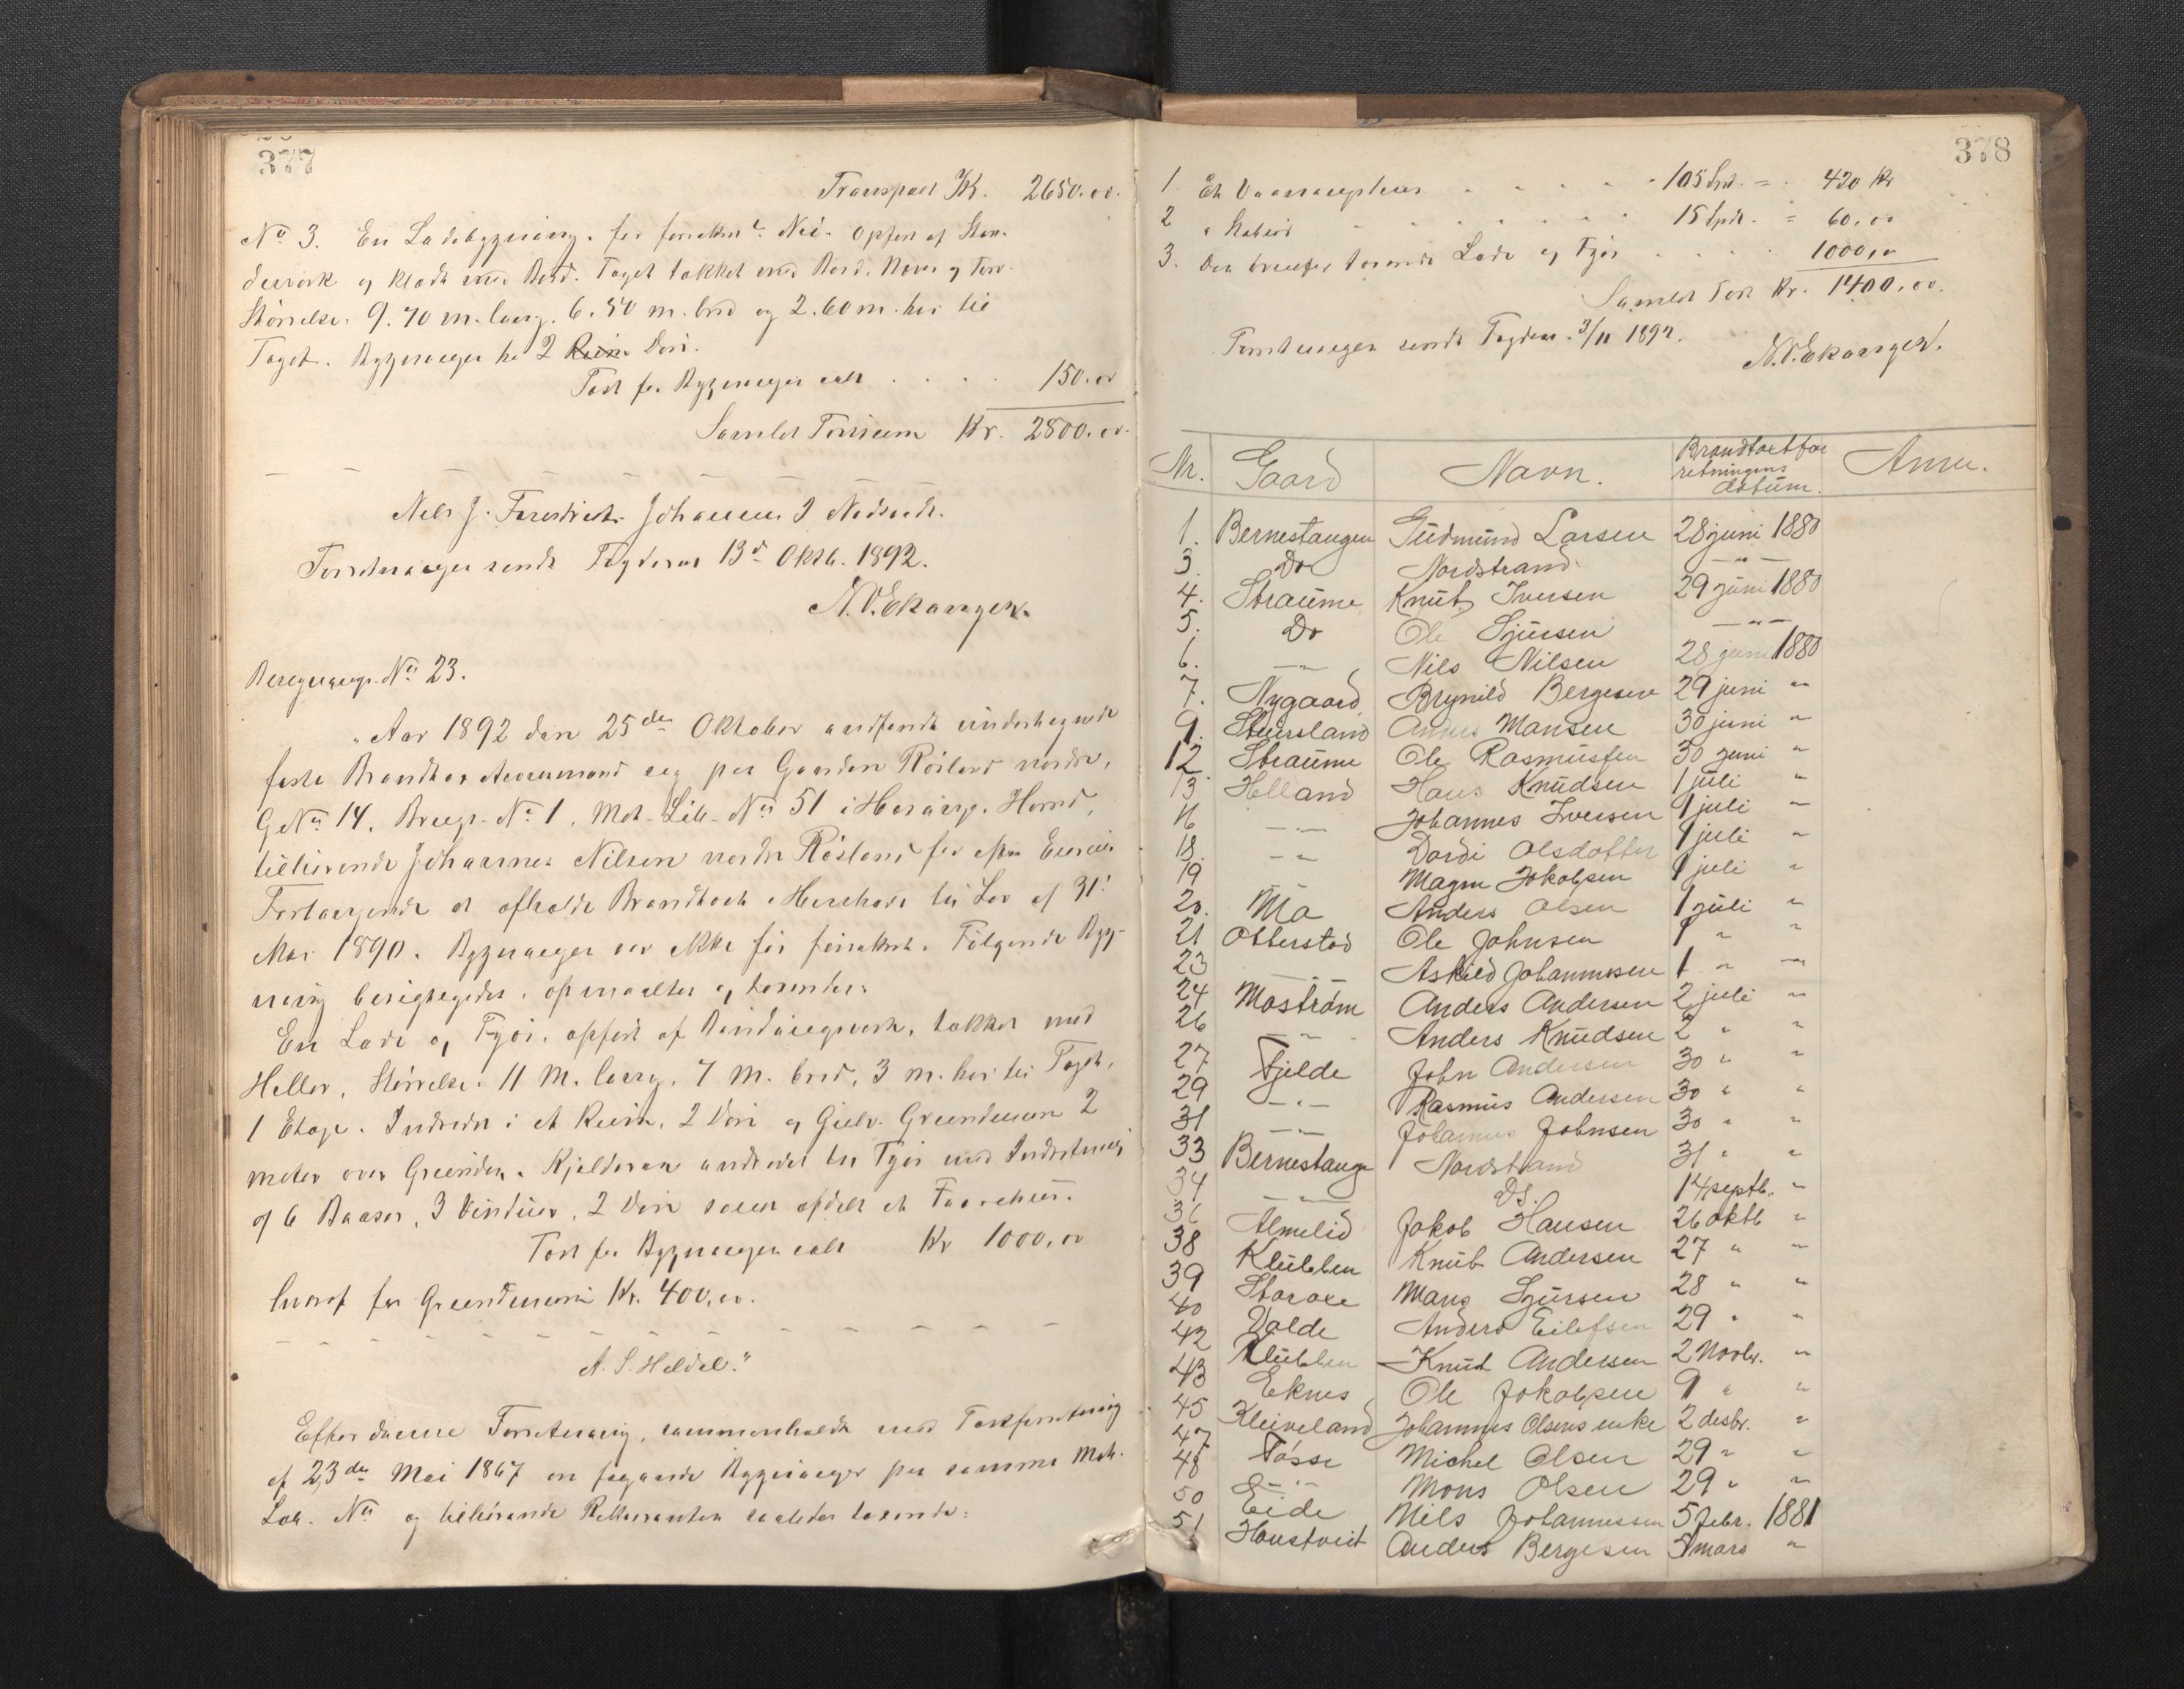 377
Transport Kr. 2650.00.
No 3. En Ladebygning. før forsikret. Nei. Opført af Stav-
deverk og klædt med Bord. Taget tækket med Bord, Næver og Torv.
Størrelse. 9.70 m. lang. 6.50 m. bred og 2.60 m. høi til
Taget. Bygningen har 2 Døre.
Taxt for Bygningen ialt . . . . 150.00
Samlet Taxtsum Kr. 2800.00.
Nels J. Johannes J
Forretningen sendt Fogderen 13de Oktb. 1892.
N.O.Ekanger.
Beregnings No 23.
"Aar 1892 den 25de Oktober indfandt undertegnede
faste Brandtaxt sig paa Gaarden Røsland nordre,
GNo 14. Brugs-No 1. Mat-Løb-No 51 i Hosanger Herred,
tilhørende Johannes Nilsen nordre Røsland for efter Eierens
Forlangende at afholde Brandtaxt i Henhold til Lov af 31'
Mai 1890. Bygningen var ikke før forsikret. Følgende Byg-
ning besigtigedes, opmaaltes og taxertes:
En Lade og Fjøs, opført af Bindingsverk, tækket med
Heller, Størrelse. 11 M. lang. 7 M. bred, 3 m. høi til Taget,
1 Etage. Indredet i et Rum, 2 Døre og Gulv. Grundmuren 2
meter over Grunden. Kjelderen indredet til Fjøs med
af 6 Baaser, 3 Vinduer, 2 Døre samt afdelt et Faarehus.
Taxt for Bygningen ialt Kr 1000,00
hvoraf for Grundmuren Kr. 400,00.
A. S. Heldal."
Efter denne Forretning, sammenholdt med Taxtforretning
af 23de Mai 1867 er følgende Bygninger paa samme Mat.
Løb. No og tilhørende Rekvirenten saaledes taxerede:
378
1 Et Vaaningshus . . . . . . 105 Spd. = 420 Kr
2 " Stabur . . . . . . 15 Spd. = 60,00
3. Den taxerede Lade og Fjøs . . . . 1000,00
Samlet Taxt Kr. 1400,00.
Forretningen sendt Fogden 3/11 1892.
N.O.Ekanger.
Nr. Gaard Navn. Brandtaxtfor retningens datum. Anm.
1. Bernestangen Gudmund Larsen 28 juni 1880
3. Do Nordstrand. —"—
4. Straume Knut Iversen 29 juni 1880
5. Do Ole Sjursen —"—
6. —"— Nils Nilsen 28 juni 1880
7. Nygaard Brynild Bergesen 29 juni "
9. Stursland Anders Mansen 30 juni "
12 Straume Ole Rasmussen 30 juni "
13. Helland Hans Knudsen 1 juli "
16 —"— Johannes Iversen 1 juli "
18. —"— Dordi Olsdatter 1 juli "
19 — Magne Jakobsen 1 juli "
20. Mo Anders Olsen 1 juli "
21 Otterstad Ole Johnsen 1 " "
23 — Askild Johannessen 1 " "
24 Mostrøm Anders Andersen 2 juli "
26 —"— Anders Knudsen 2 " "
27 Fjelde John Andersen 30 " "
29 —"— Rasmus Andersen 30 " "
31 —"— Johannes Johnsen 30 " "
33 Bernestange Nordstrand 31 " "
34 —"— Do. 14 septb. "
36 Almelid Jakob Hansen 26 oktb "
38 Klubben Knut Andersen 27 " "
39 Storaxe Mang Sjursen 28 " "
40 Valde Anders Eilefsen 29 " "
42 Klubben Knut Andersen 2 Novbr. "
43 Eknes Ole Jakobsen 9 " "
45 Kleiveland Johannes Olsens enke 2 desbr. "
47 Tøsse Michel Olsen 29 " "
48 —"— Mons Olsen 29 " "
50 Eide Nils Johannessen 5 Febr. 1881
51 Houstveit Anders Bergesen 5 mars "